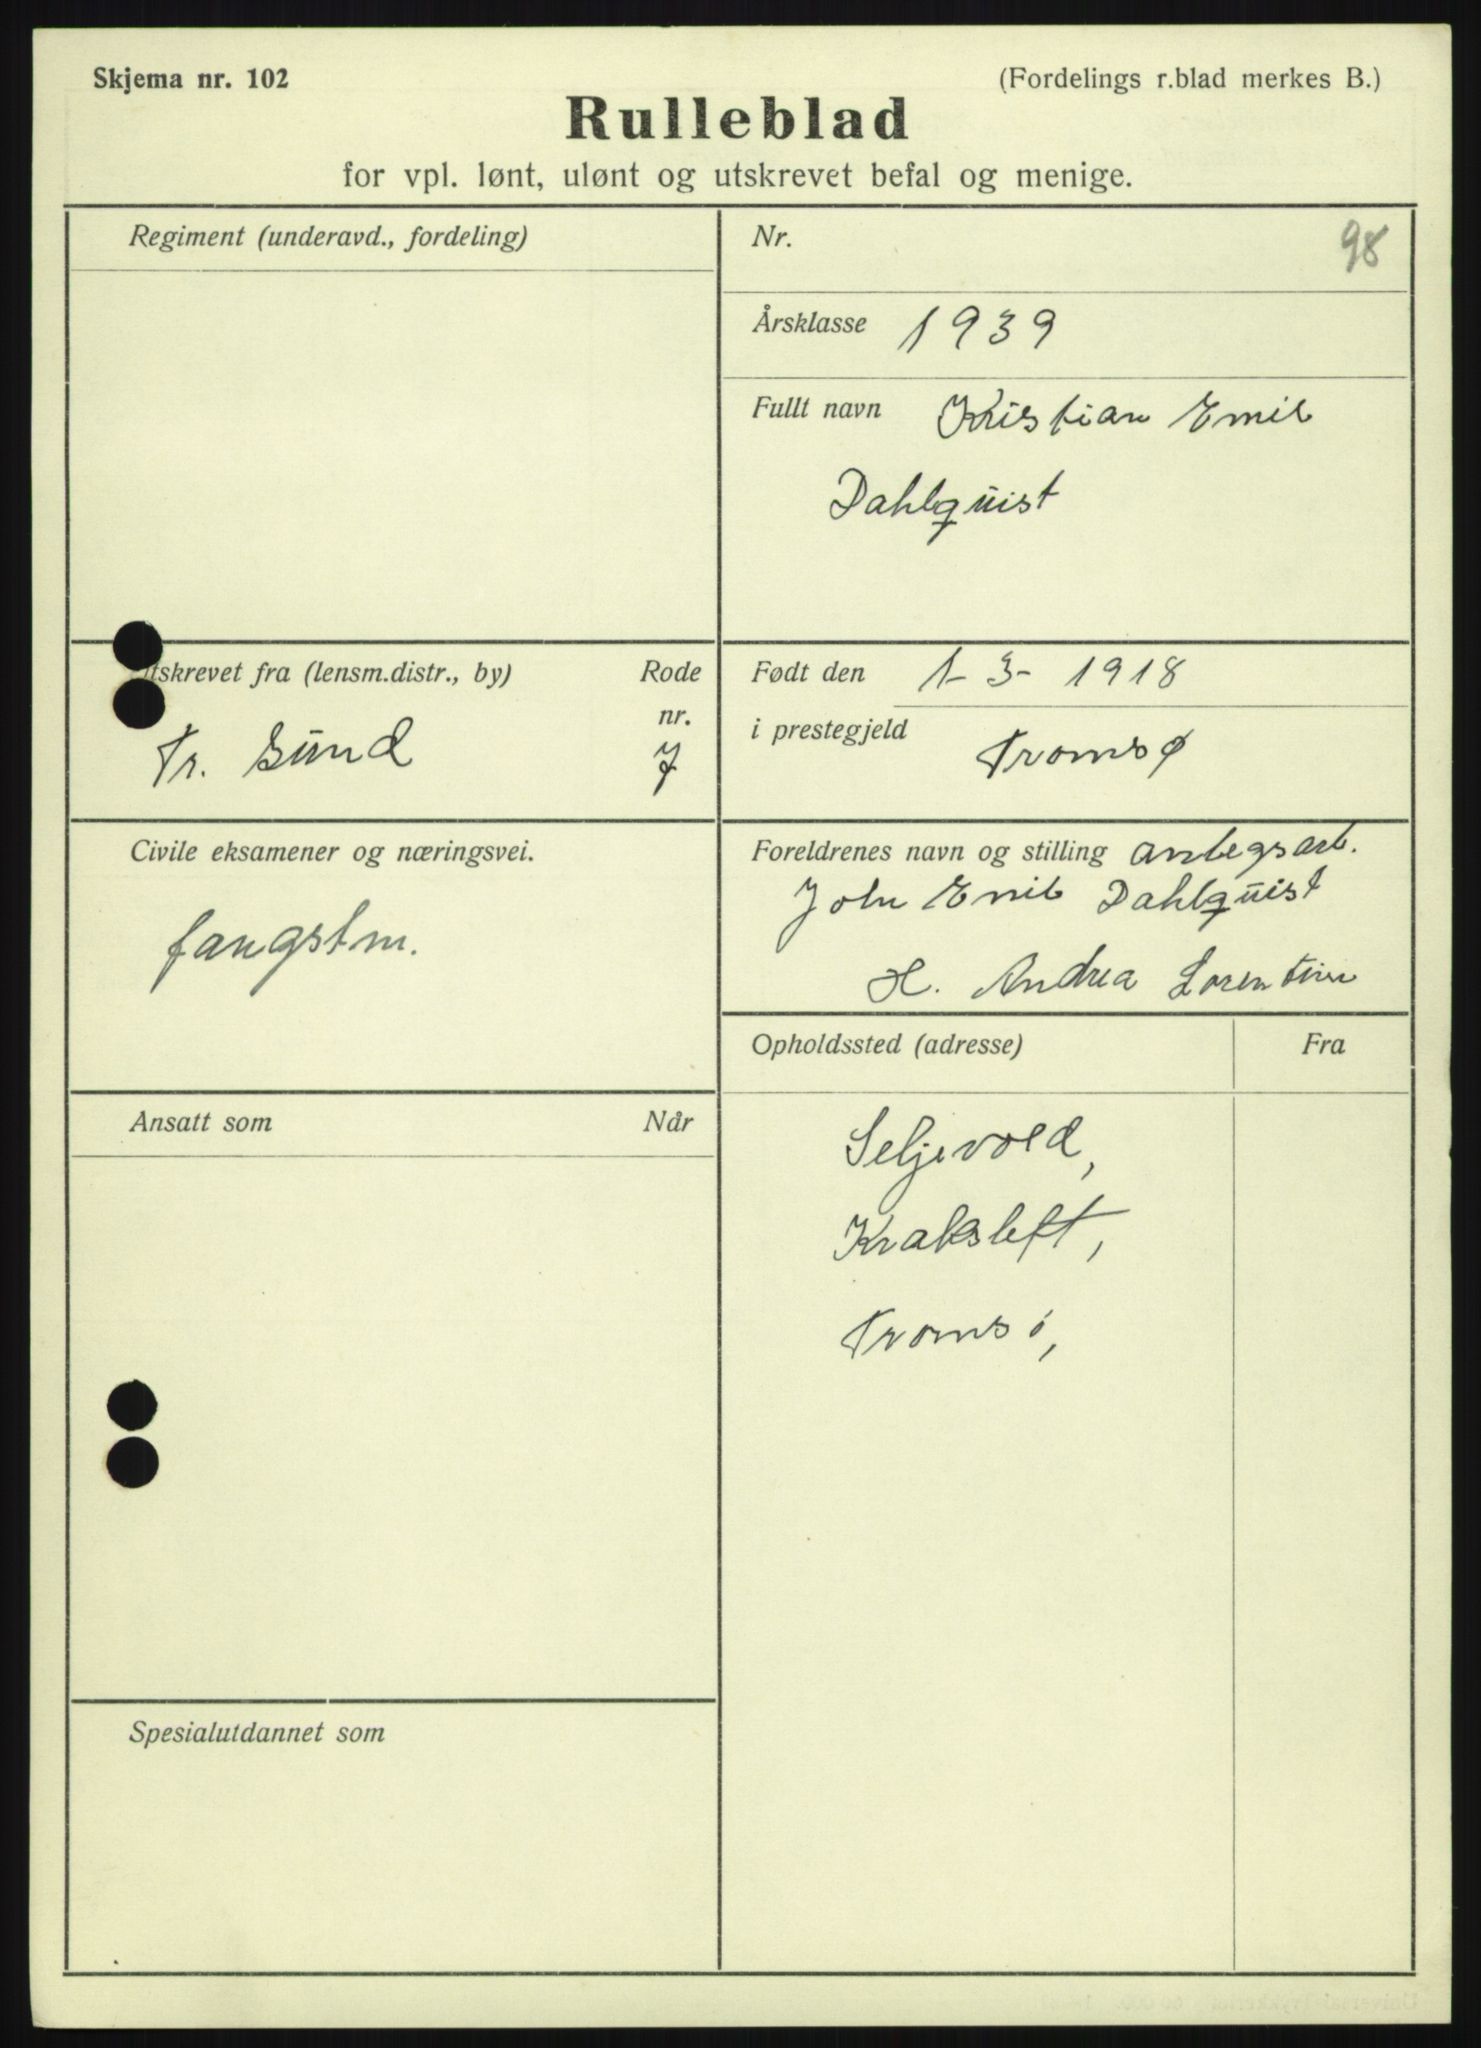 Skjema nr. 102
(Fordelings r.blad merkes B.)
Rulleblad
for vpl. lønt, ulønt og utskrevet befal og menige.
Regiment (underavd., fordeling)
Nr. 98
Årsklasse 1939
Fullt navn Kristian Emil
Dahlquist
tskrevet fra (lensm.distr., by) Rode
nr.
Tr. sund 7
Født den 1-3-1918
i prestegjeld Tromsø
Civile eksamener og næringsvei.
fangstm.
Foreldrenes navn og stilling anlegsarb.
John Emil Dahlquist
H. Andrea Lorentine
Opholdssted (adresse) Fra
Seljevold,
Krakslett,
Tromsø,
Ansatt som Når
Spesialutdannet som